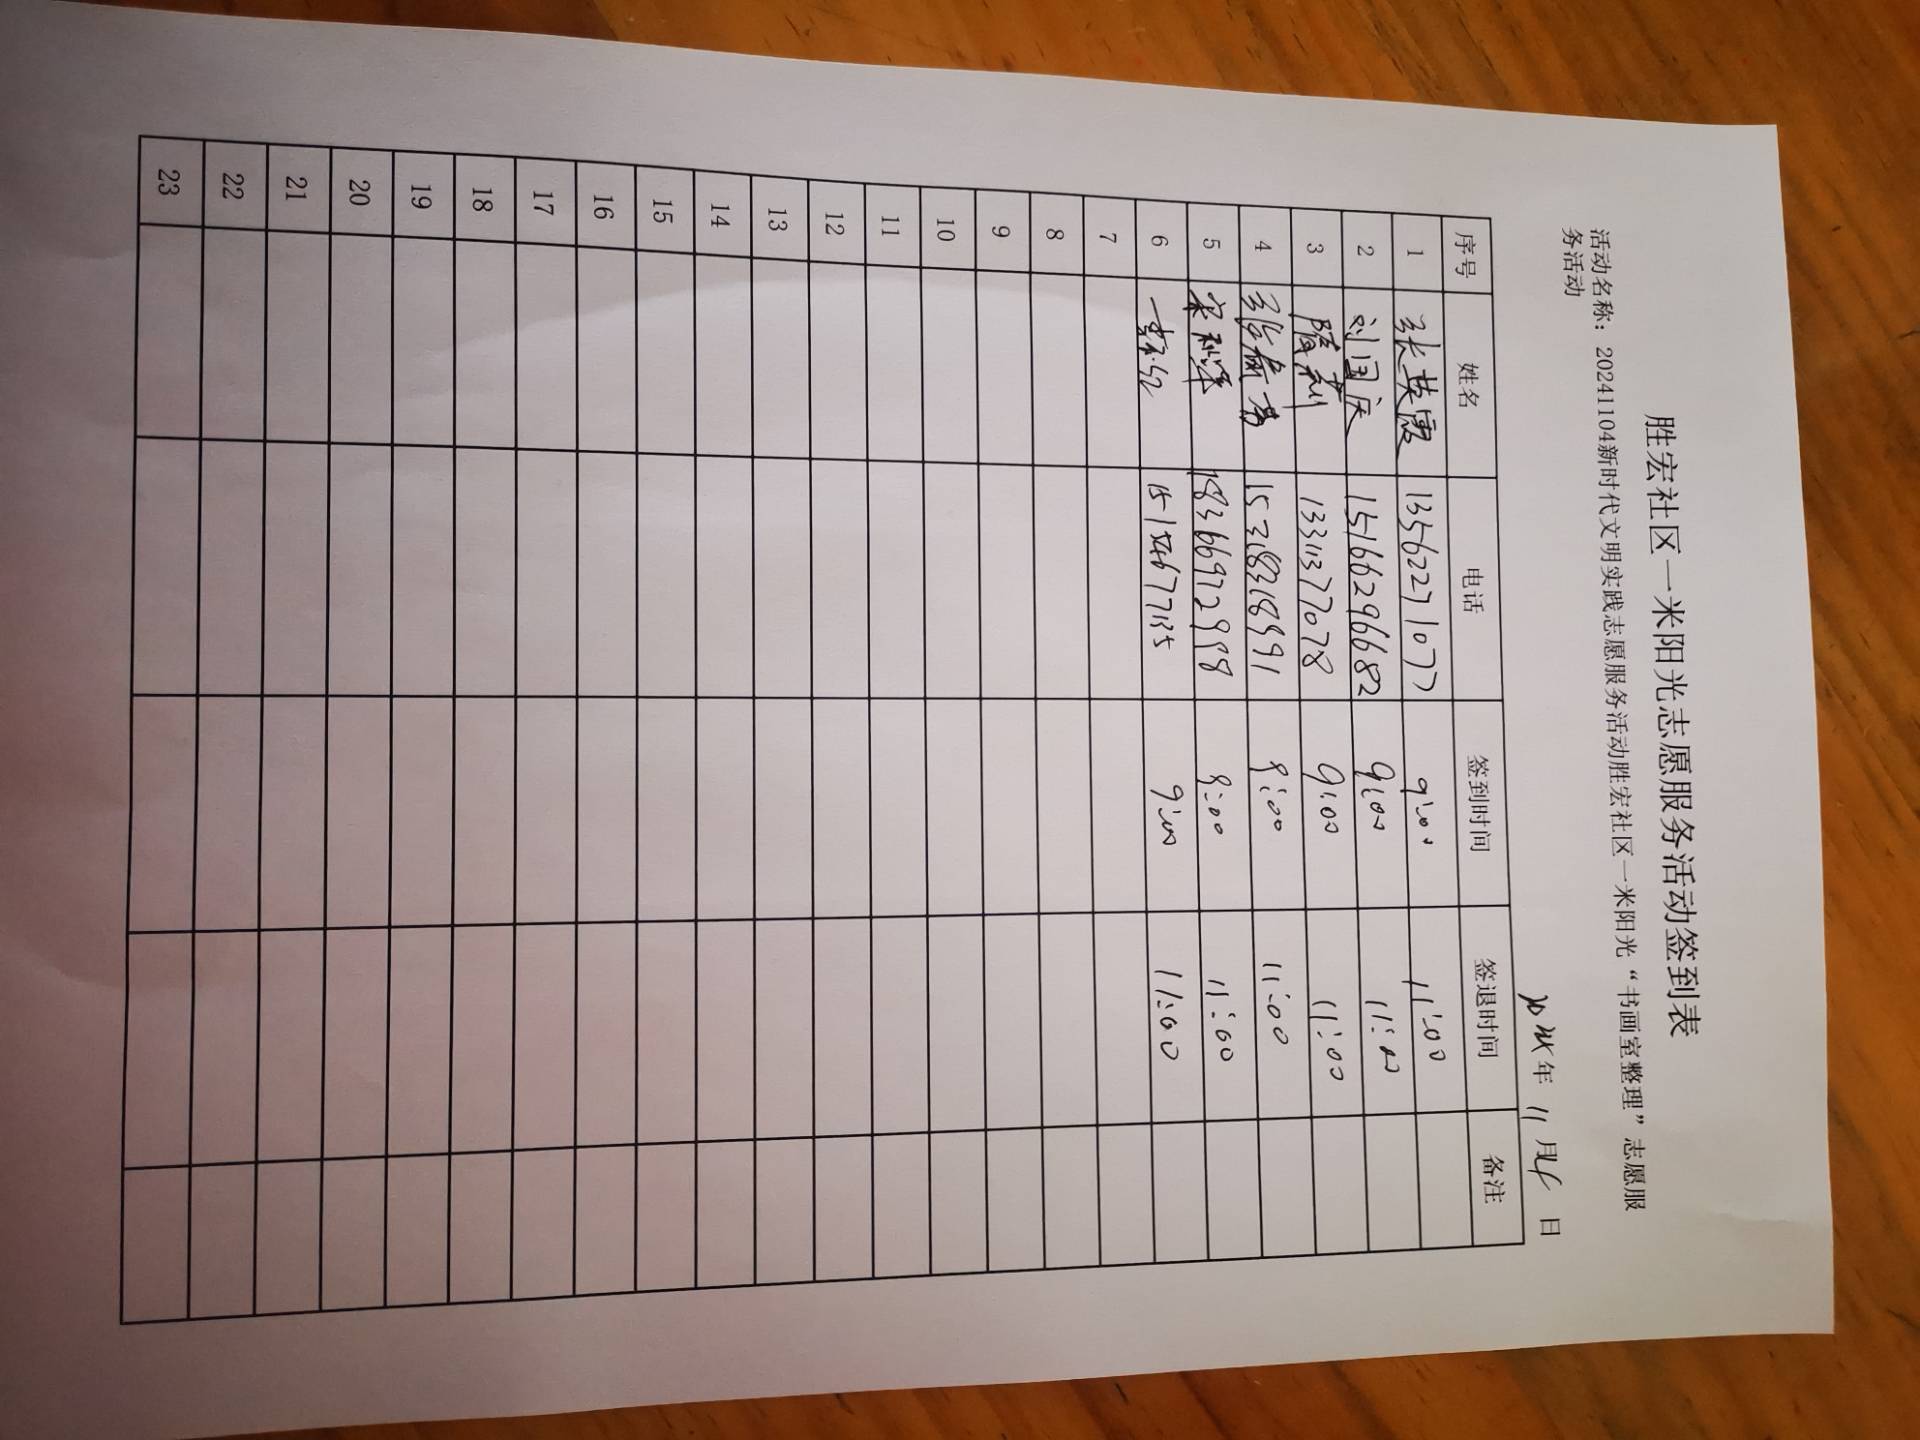 胜宏社区一米阳光志愿服务活动签到表
活动名称：20241104新时代文明实践志愿服务活动胜宏社区一米阳光“书画室整理”志愿服
务活动
2024年 11月4日
序号 姓名 电话 签到时间 签退时间 备注
1 张英霞 13562271077 9:00 11:00
2 刘国庆 15166296682 9:00 11:00
3 隋莉 13311377078 9:00 11:00
4 15318318991 9:00 11:00
5 18366972998 9:00 11:00
6 15154677135 9:00 11:00
7
8
9
10
11
12
13
14
15
16
17
18
19
20
21
22
23